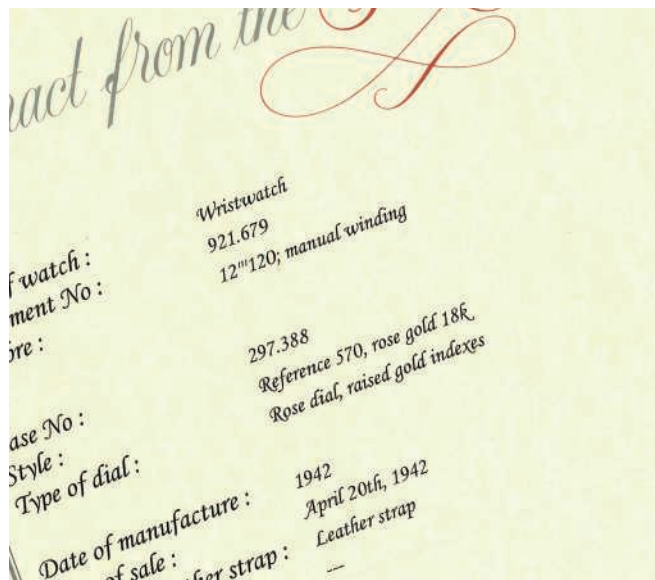 ract from the
f watch : Wristwatch
ment No : 921.679
re : 12'''120; manual winding
ase No : 297.388
Style : Reference 570, rose gold 18k
Type of dial : Rose dial, raised gold indexes
Date of manufacture : 1942
of sale : April 20th, 1942
her strap : Leather strap
—